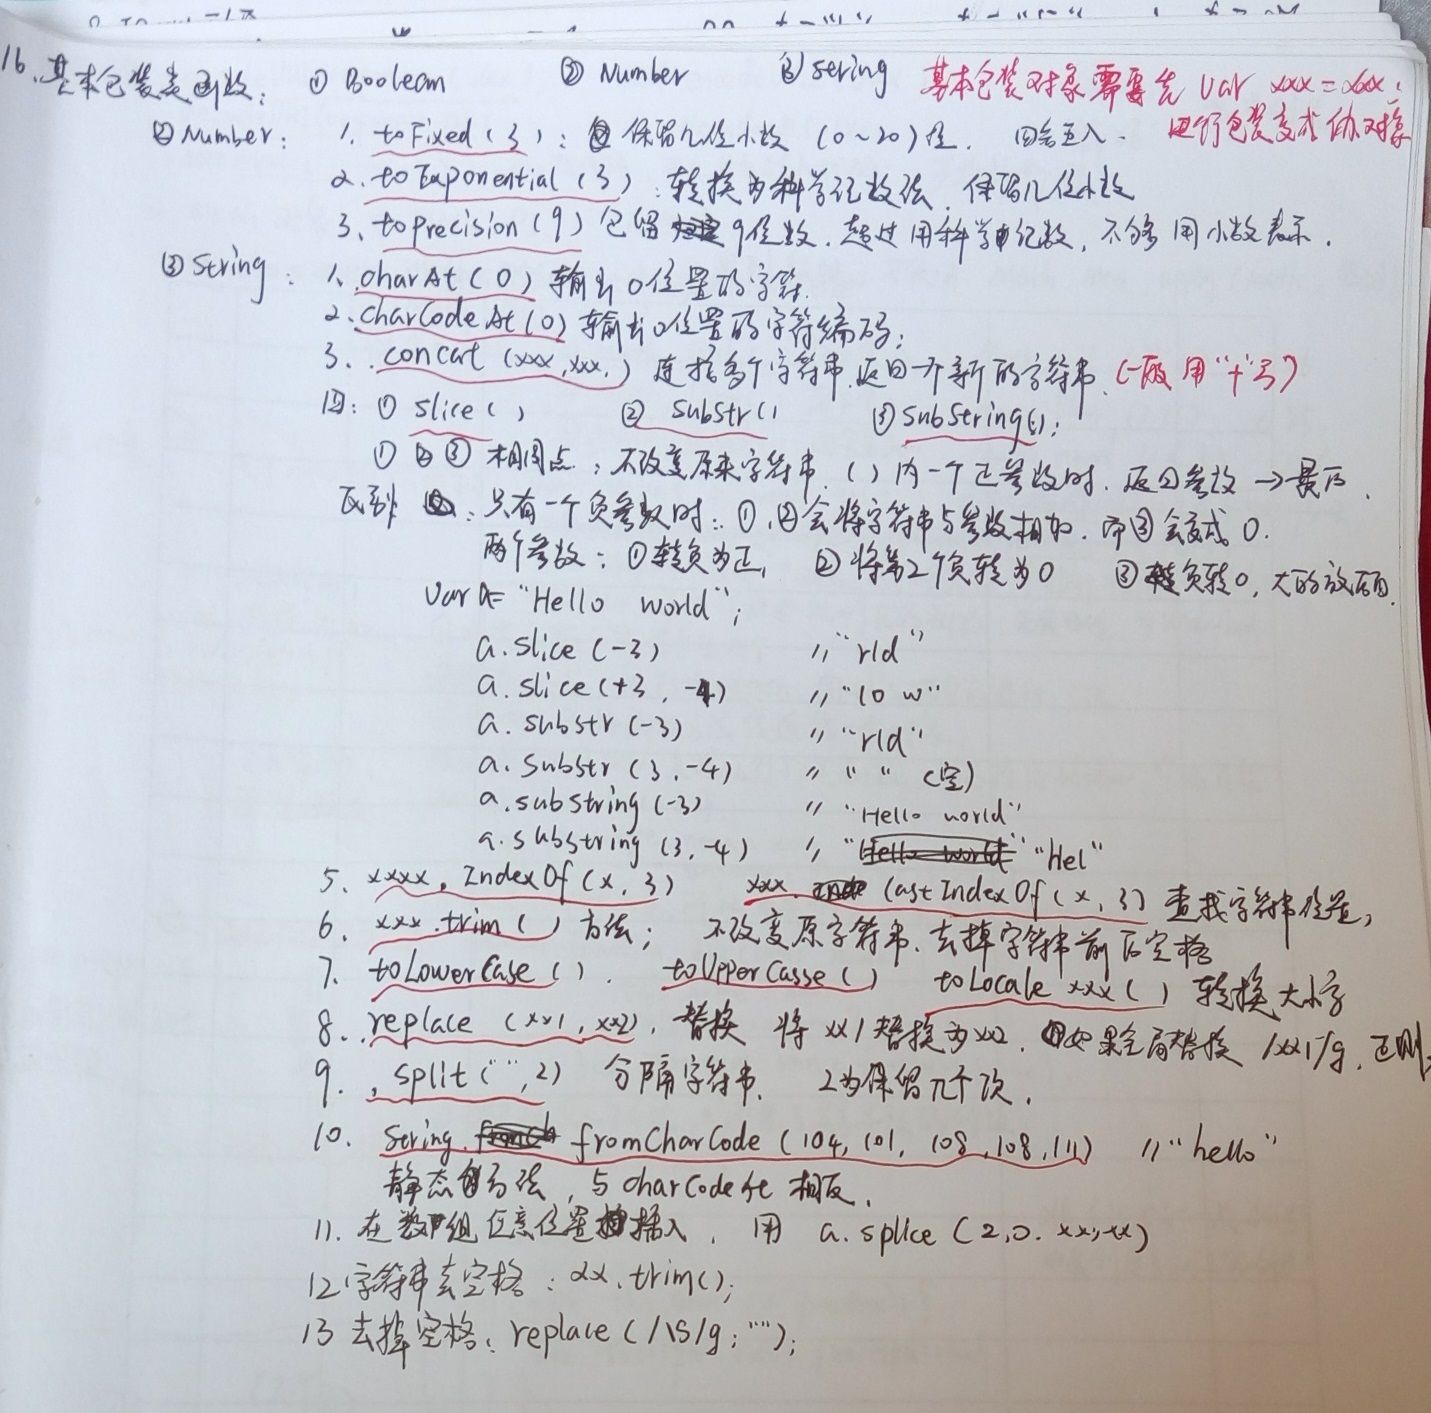 16、基本包装类函数： ① Boolean ② Number ③ String 基本包装对象需要先 var xxx = xxx;
进行包装变成伪对象
② Number： 1. toFixed(3)： 保留几位小数 (0~20)位. 四舍五入.
2. toExponential(3)：转换为科学记数法. 保留几位小数
3. toprecision(9) 包留 9位数. 超过用科学记数, 不够用小数表示.
③ String： 1. charAt(0) 输出0位置的字符.
2. charCodeAt(0) 输出0位置的字符编码;
3. .concat(xxx,xxx,) 连接多个字符串.返回一个新的字符串. (一般用"+"号)
四: ① slice() ② substr() ③ subString();
① ② ③ 相同点：不改变原来字符串. ()内一个正参数时. 返回参数→最后.
区别：只有一个负参数时：①.②会将字符串与参数相加. 而③会变成0.
两个参数：①转负为正, ②将第2个负转为0 ③负转0, 大的放后面.
var a= "Hello world";
a.slice(-3) // "rld"
a.slice(+3, -4) // "lo w"
a.substr(-3) // "rld"
a.substr(3.-4) // " " (空)
a.substring(-3) // "Hello world"
a.substring(3,-4) // "Hel"
5、xxxx. IndexOf(x, 3) xxx. lastIndexOf(x, 3) 查找字符串位置;
6、xxx.trim() 方法; 不改变原字符串. 去掉字符串前后空格
7、toLowerCase(). toUpperCasse() toLocale xxx() 转换大小写
8、.replace(xx1, xx2). 替换 将xx1替换为xx2. 如果全局替换 /xx1/g. 正则
9. .split("",2) 分隔字符串. 2为保留几个次.
10. String. fromCharCode(104, 101, 108, 108, 111) // "hello"
静态方法, 与charCodeAt 相反.
11. 在数组任意位置插入, 用 a.splice(2,0. xx,xx)
12 字符串去空格：xx.trim();
13 去掉空格: replace(/\s/g; "");